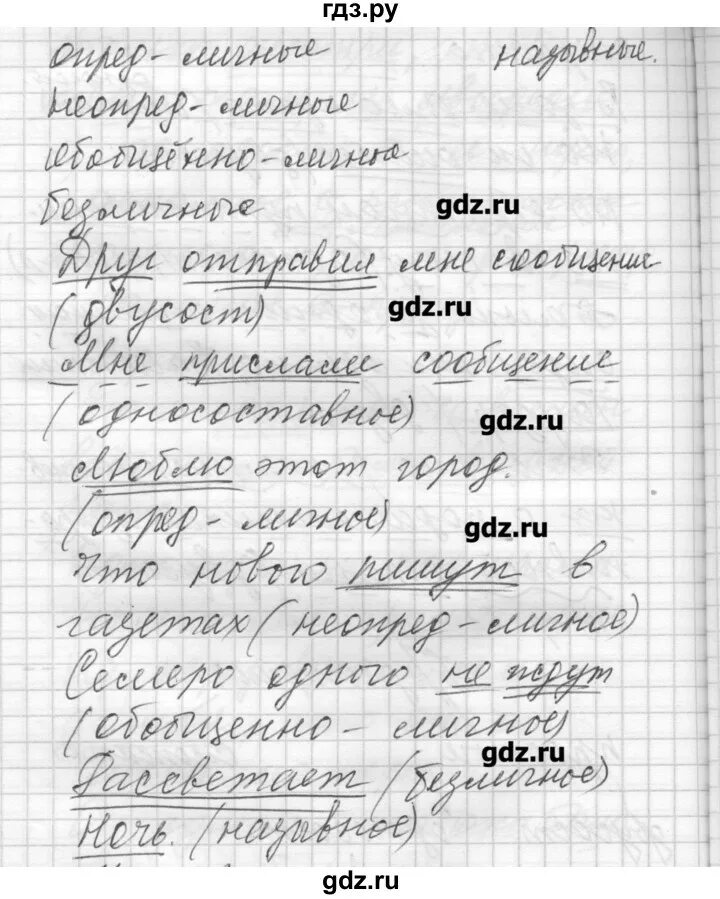 гдз.ру
опред- личные назывные.
неопред- личные
обобщённо - личные
безличные
gdz.ru
Друг отправил мне сообщение
(двусост)
gdz.ru
Мне прислали сообщение
(односоставное)
gdz.ru
Люблю этот город.
(опред- личное)
gdz.ru
Что нового пишут в
газетах (неопред - личное)
Семеро одного не ждут
(обобщенно - личное)
gdz.ru
Рассветает (безличное)
Ночь. (назывное)
gdz.ru